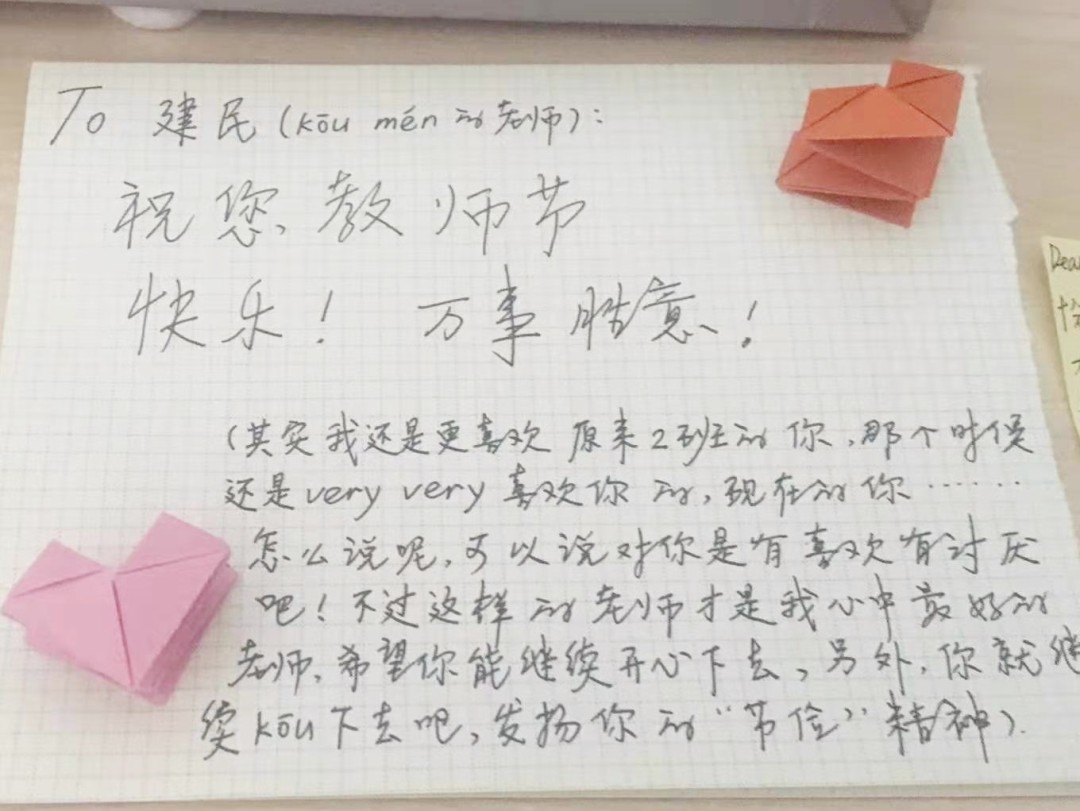 To 建民(kōu mén的老师):
祝您教师节
快乐! 万事胜意!
(其实我还是更喜欢原来2班的你,那个时候
还是very very喜欢你的,现在的你……
怎么说呢,可以说对你是有喜欢有讨厌
吧!不过这样的老师才是我心中最好的
老师,希望你能继续开心下去,另外,你就继
续kōu下去吧,发扬你的“节俭”精神).
Dea